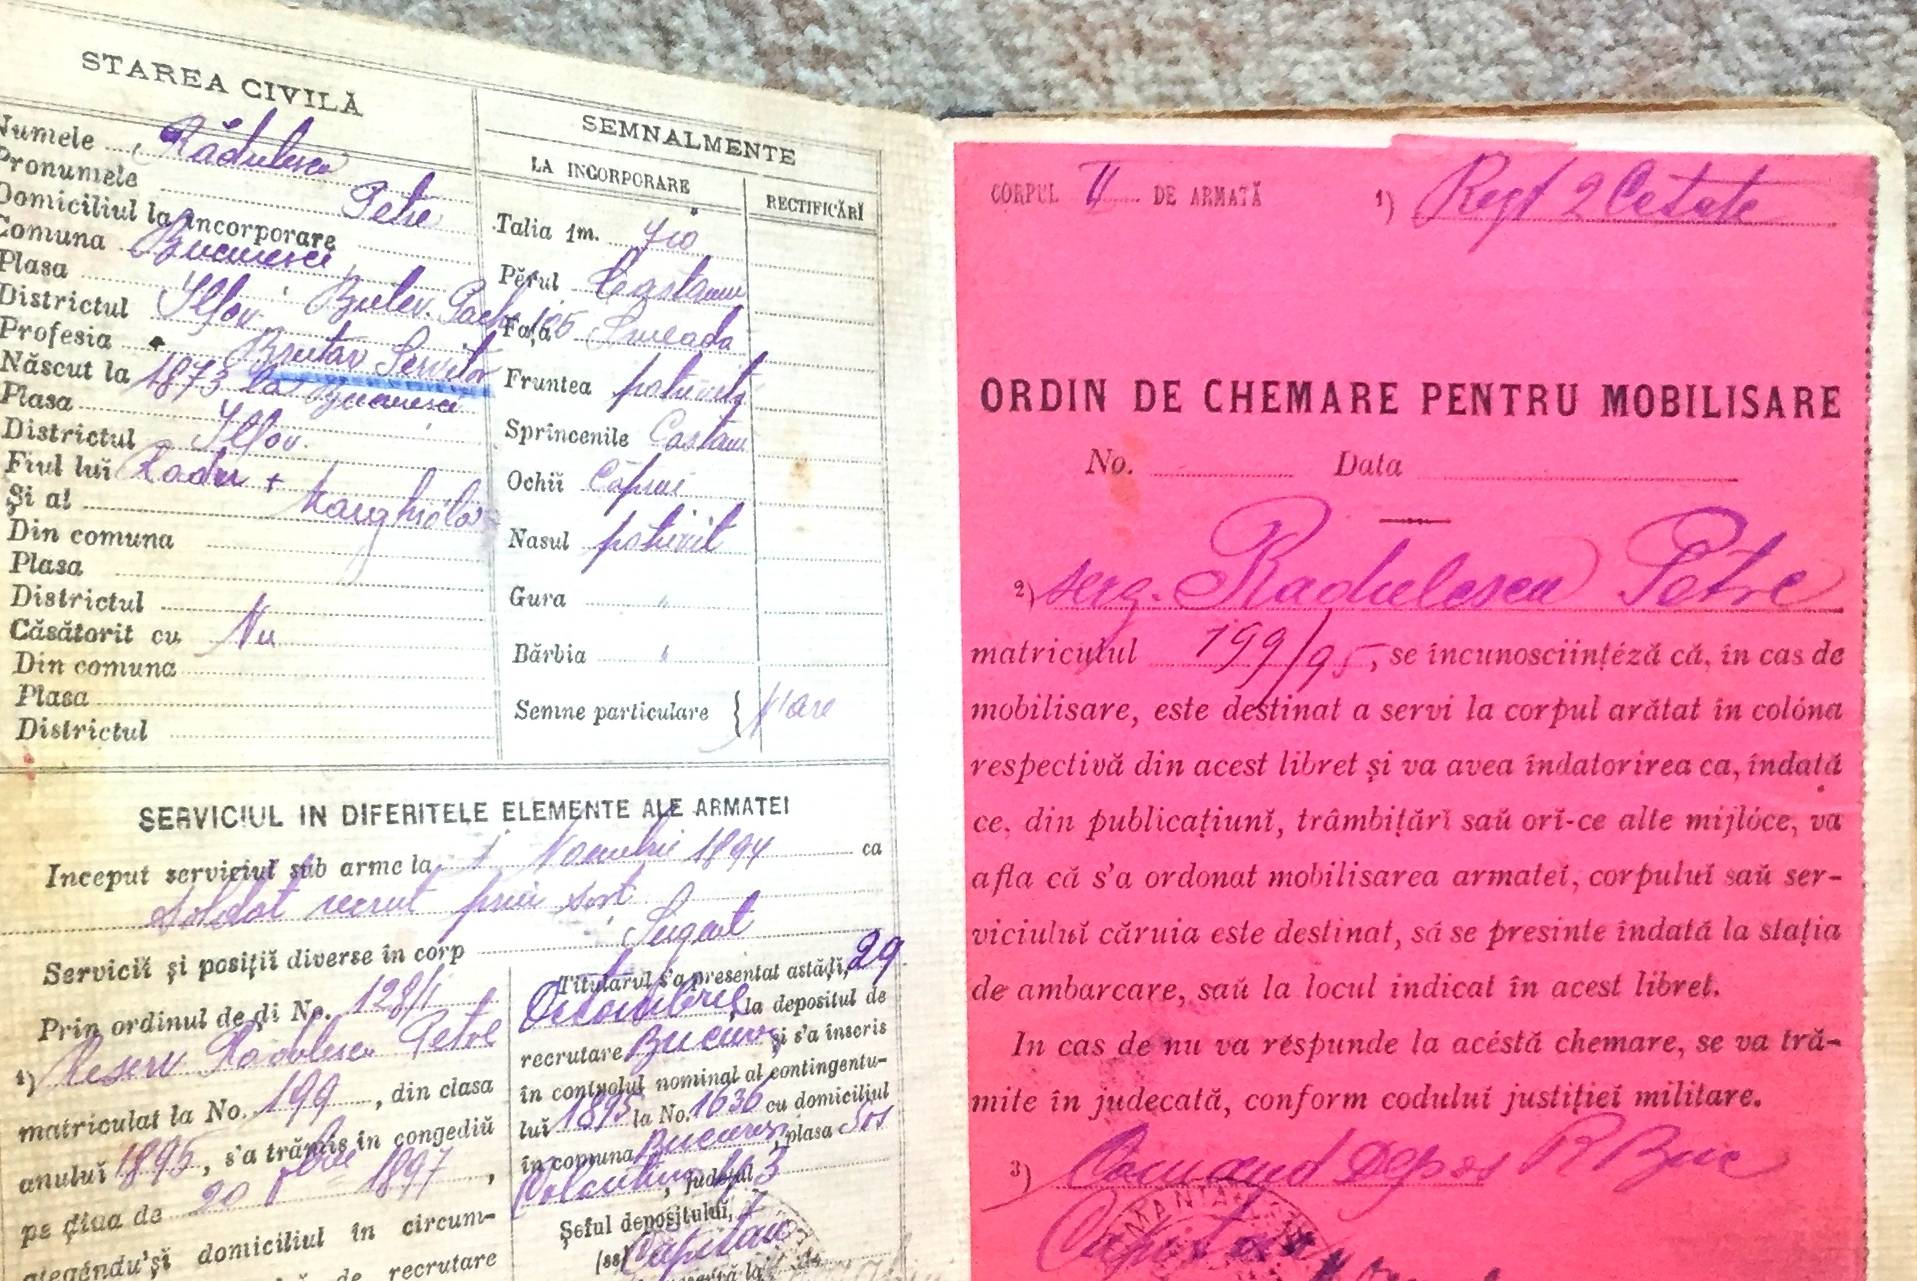 STAREA CIVILĂ
Numele Rădulescu
Pronumele Petre
Domiciliul la incorporare
Comuna Bucuresci
Plasa
Districtul Ilfov Bulev. Pache 105
Profesia Brutar Servitor
Născut la 1873 la Bucuresci
Plasa
Districtul Ilfov.
Fiul lui Radu +
Și al Marghiola
Din comuna
Plasa
Districtul
Căsătorit cu Nu
Din comuna
Plasa
Districtul
SEMNALMENTE
LA INCORPORARE
RECTIFICĂRI
Talia 1m. 710
Pĕrul Castaniu
Fața Smeada
Fruntea potrivită
Sprîncenile Castani
Ochii Căprui
Nasul potrivit
Gura "
Bărbia "
Semne particulare { N'are
SERVICIUL IN DIFERITELE ELEMENTE ALE ARMATEI
Inceput serviciul sub arme la 1 Noembrie 1894 ca
soldat recrut prin sort
Servicii și posiții diverse în corp Sergent
Prin ordinul de di No. 128/1
1) Reserv Rădulescu Petre
matriculat la No. 199, din clasa
anuluĭ 1895, s'a trămis în congediŭ
pe diua de 20 1897,
alegêndu'șĭ domiciliul în circum-
de recrutare
Titularul s'a presentat astădi, 29
Octombrie, la depositul de
recrutare Bucur și s'a înscris
în controlul nominal al contingentu-
luĭ 1895 la No. 1636 cu domiciliul
în comuna Bucuresci, plasa Sos
Colentina 113, județul
Șeful deposituluĭ,
(ss) Capitan
CORPUL II DE ARMATĂ 1) Regt 2 Cetate
ORDIN DE CHEMARE PENTRU MOBILISARE
No. Data
2) serg. Radulescu Petre
matriculul 199/95, se încunosciințéză că, în cas de
mobilisare, este destinat a servi la corpul arătat în colóna
respectivă din acest libret și va avea îndatorirea ca, îndată
ce, din publicațiunĭ, trâmbițărĭ saŭ orĭ-ce alte mijlóce, va
afla că s'a ordonat mobilisarea armateĭ, corpuluĭ saŭ ser-
viciuluĭ căruia este destinat, să se presinte îndată la stația
de ambarcare, saŭ la locul indicat în acest libret.
In cas de nu va rĕspunde la acéstă chemare, se va tră-
mite în judecată, conform coduluĭ justițieĭ militare.
3) Comand Depos R Buc
Capitan